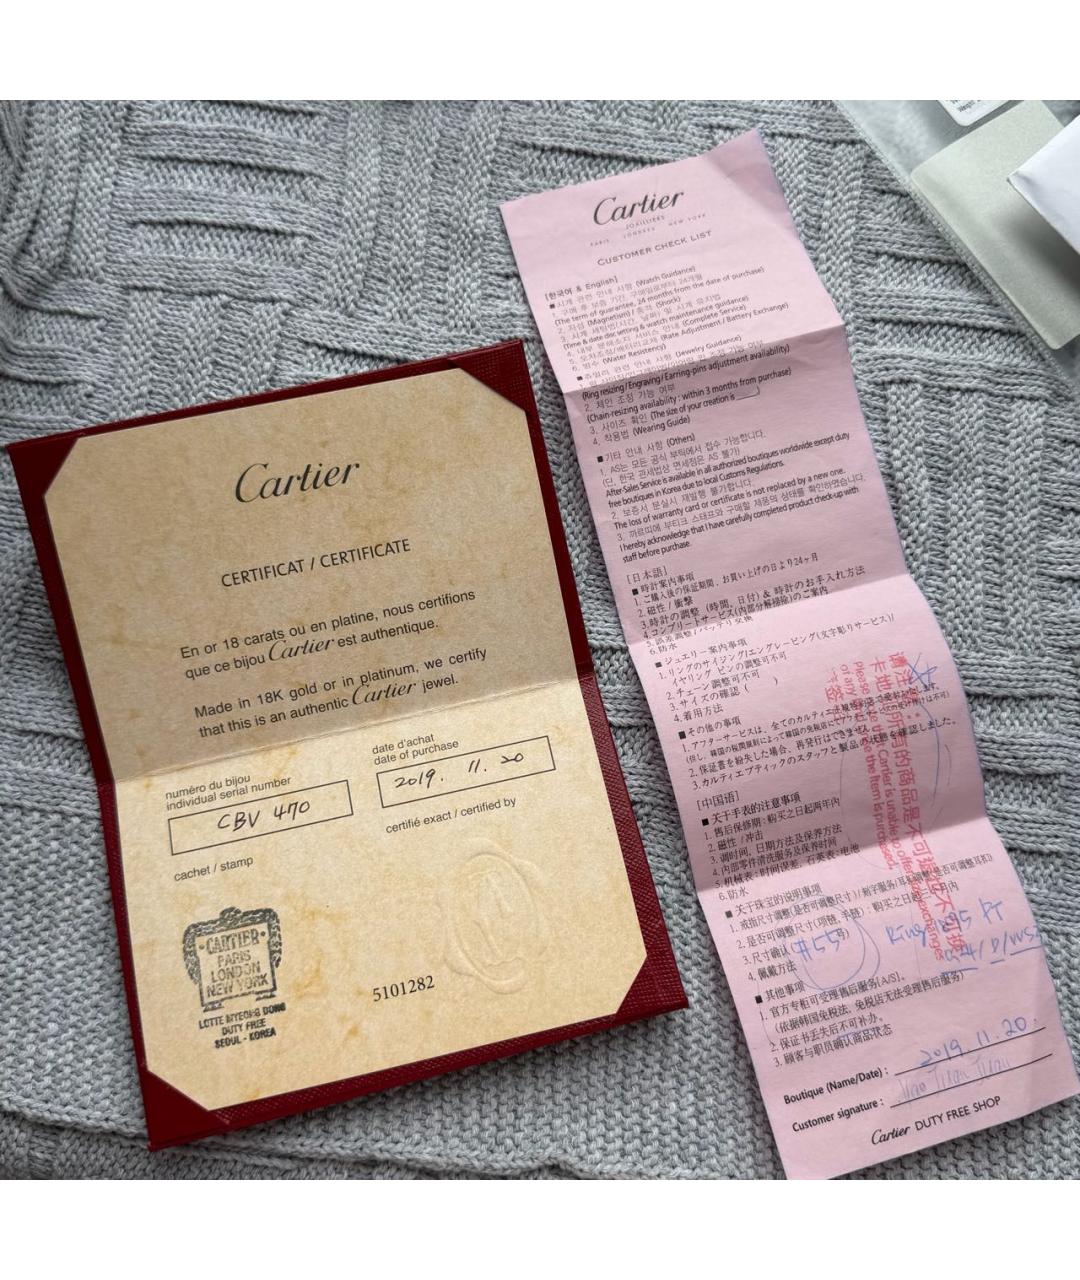 Cartier
CERTIFICAT / CERTIFICATE
En or 18 carats ou en platine, nous certifions
que ce bijou Cartier est authentique.
Made in 18K gold or in platinum, we certify
that this is an authentic Cartier jewel.
numéro du bijou
individual serial number
CBV 470
date d'achat
date of purchase
2019. 11. 20
cachet / stamp
certifié exact / certified by
CARTIER
PARIS
LONDON
NEW YORK
LOTTE MYEONG DONG
DUTY FREE
SEOUL - KOREA
5101282
Cartier
JOAILLIERS
PARIS LONDRES NEW YORK
CUSTOMER CHECK LIST
[한국어 & English]
■ 시계 관련 안내 사항 (Watch Guidance)
1. 구매 후 보증 기간, 구매일로부터 24개월
(The term of guarantee, 24 months from the date of purchase)
2. 자성 (Magnetism) / 충격 (Shock)
3. 시계 세팅법(시간, 날짜) 및 시계 유지법
(Time & date disc setting & watch maintenance guidance)
4. 내부 분해소지 서비스 안내 (Complete Service)
5. 오차조정/배터리교체 (Rate Adjustment / Battery Exchange)
6. 방수 (Water Resistency)
■ 쥬얼리 관련 안내 사항 (Jewelry Guidance)
(Ring resizing / Engraving / Earring-pins adjustment availability)
2. 체인 조정 가능 여부
(Chain-resizing availability : within 3 months from purchase)
3. 사이즈 확인 (The size of your creation is
4. 착용법 (Wearing Guide)
■ 기타 안내 사항 (Others)
1. AS는 모든 공식 부틱에서 접수 가능합니다.
(단, 한국 관세법상 면세점은 AS 불가)
After-Sales Service is available in all authorized boutiques worldwide except duty
free boutiques in Korea due to local Customs Regulations.
2. 보증서 분실시 재발행 불가합니다.
The loss of warranty card or certificate is not replaced by a new one.
3. 까르띠에 부티크 스태프와 구매할 제품의 상태를 확인하였습니다.
I hereby acknowledge that I have carefully completed product check-up with
staff before purchase.
[日本語]
■ 時計案内事項
1. ご購入後の保証期間、お買い上げの日より24ヶ月
2. 磁性 / 衝撃
3. 時計の調整 (時間、日付) & 時計のお手入れ方法
4. コンプリートサービス(内部分解掃除)のご案内
6. 防水
■ ジュエリー案内事項
1. リングのサイジング/エングレービング(文字彫りサービス)/
イヤリング ピンの調整可不可
2. チェーン調整可不可
3. サイズの確認 ( )
4. 着用方法
■ その他の事項
1. アフターサービスは、全てのカルティエ
2. 保証書を紛失した場合、再発行はできません
3. カルティエブティックのスタッフと製品の状態を確認しました。
[中国语]
■ 关于手表的注意事项
1. 售后保修期: 购买之日起两年内
2. 磁性 / 冲击
3. 调时间, 日期方法及保养方法
4. 内部零件清洗服务及保养时间
5. 机械表: 时间误差, 石英表: 电池
6. 防水
■ 关于珠宝的说明事项
1. 戒指尺寸调整(是否可调整尺寸) / 刻字服务/
2. 是否可调整尺寸(项链, 手链) : 购买之日
3. 尺寸确认 ( #55号)
4. 佩戴方法
■ 其他事项
1. 官方专柜可受理售后服务(A/S)。
(依据韩国免税法, 免税店无法受理售后服务)
2. 保证书丢失后不可补办。
3. 顾客与职员确认商品状态
Please note that Cartier is unable to offer exchanges
Boutique (Name/Date) : 2019. 11. 20
Customer signature :
Cartier DUTY FREE SHOP